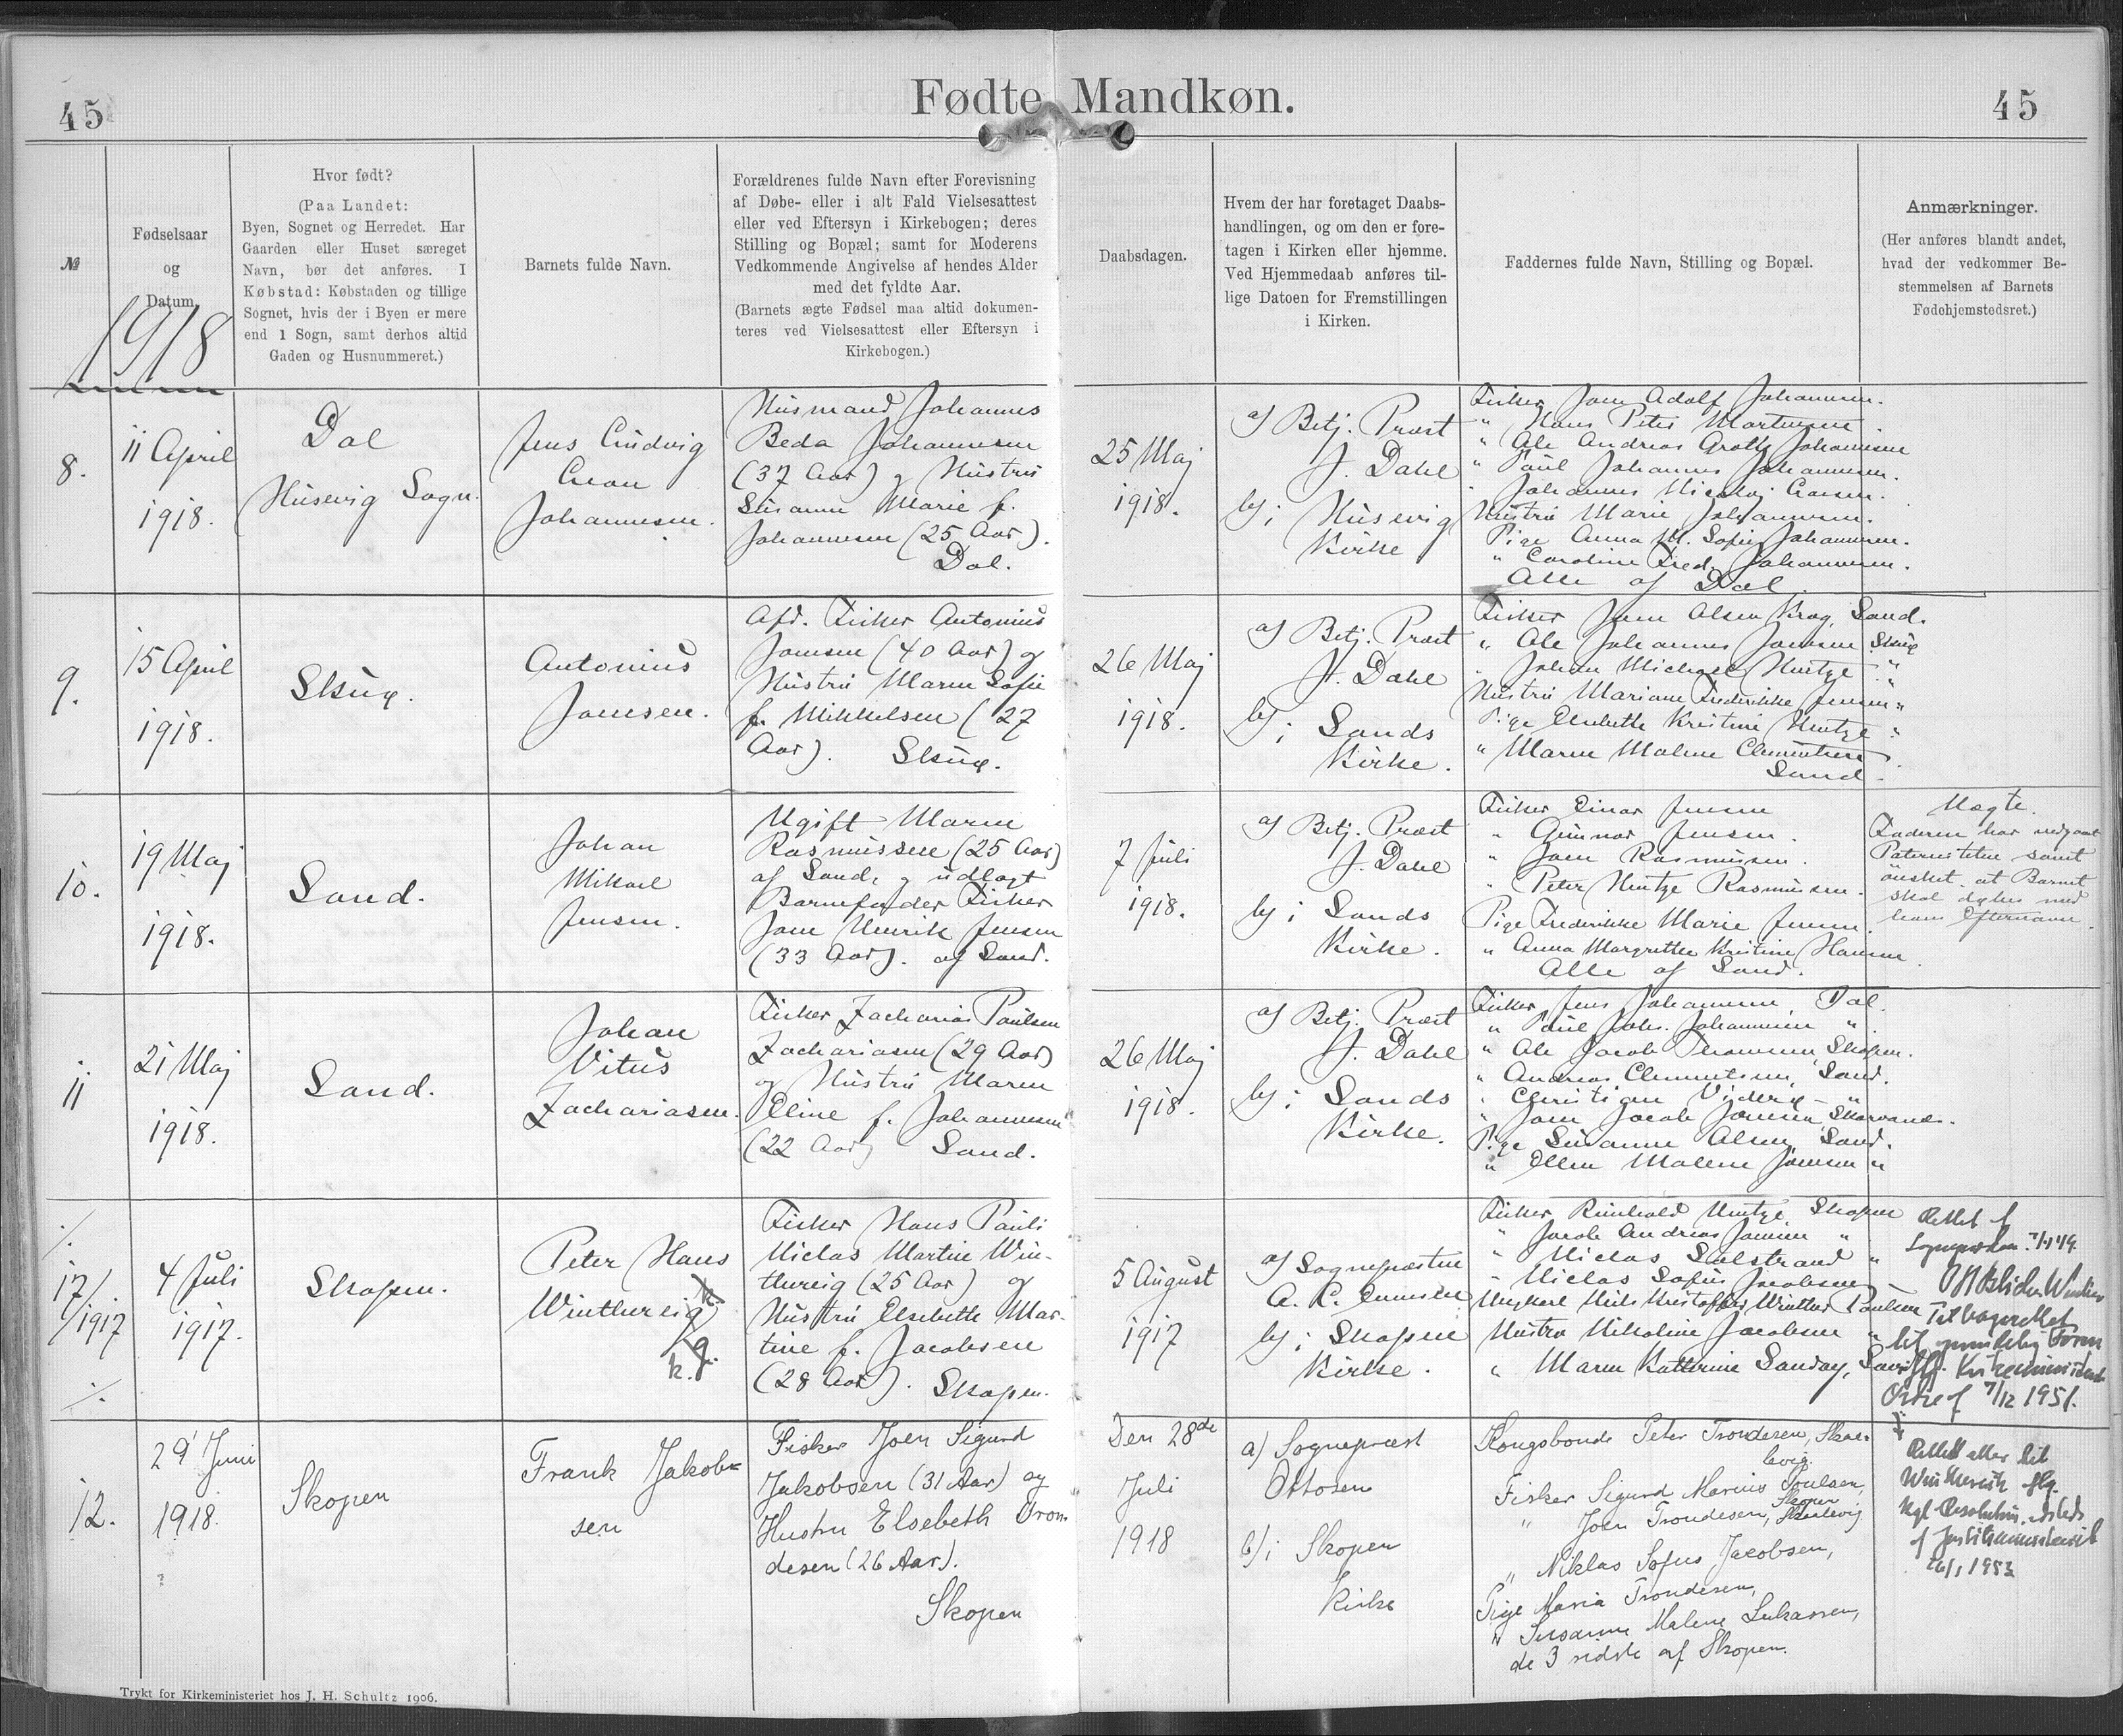 45
Fødte Mandkøn.
45
№
Fødselsaar
og
Datum.
1918
Hvor født?
(Paa Landet:
Byen, Sognet og Herredet. Har
Gaarden eller Huset særeget
Navn, bør det anføres. I
Købstad: Købstaden og tillige
Sognet, hvis der i Byen er mere
end 1 Sogn, samt derhos altid
Gaden og Husnummeret.)
Barnets fulde Navn.
Forældrenes fulde Navn efter Forevisning
af Døbe- eller i alt Fald Vielsesattest
eller ved Eftersyn i Kirkebogen; deres
Stilling og Bopæl; samt for Moderens
Vedkommende Angivelse af hendes Alder
med det fyldte Aar.
(Barnets ægte Fødsel maa altid dokumen-
teres ved Vielsesattest eller Eftersyn i
Kirkebogen.)
Daabsdagen.
Hvem der har foretaget Daabs-
handlingen, og om den er fore-
tagen i Kirken eller hjemme.
Ved Hjemmedaab anføres til-
lige Datoen for Fremstillingen
i Kirken.
Faddernes fulde Navn, Stilling og Bopæl.
Anmærkninger.
(Her anføres blandt andet,
hvad der vedkommer Be-
stemmelsen af Barnets
Fødehjemstedsret.)
8.
11 April
1918.
Dal
Husevig Sogn.
Jens Ludvig
Johannesen.
Husmand Johannes
Beda Johannesen
(37 Aar) og Hustru
Susanne Marie f.
Johannesen (25 Aar).
Dal.
25 Maj
1918.
a) Betj. Præst
J. Dahl
b) i Husevig
Kirke
Fisker Joen Adolf Johannesen.
" Hans Peter Mortensen.
" Ole Andreas Groth Johannesen
" Paul Johannes Johannesen.
" Johannes Nicolaj
Hustru Marie Johannesen.
Pige Anna M. Sofie Johannesen.
" Caroline Fred. Johannesen.
Alle af Dal.
9.
15 April
1918.
Skuø.
Antonius
Joensen.
Afd. Fisker Antonius
Joensen (40 Aar) og
Hustru Maren Sofie
f. Mikkelsen (27
Aar). Skuø.
26 Maj
1918.
a) Betj. Præst
J. Dahl
b) i Sands
Kirke.
Fisker Joen Olsen Krog, Sand.
" Ole Johannes Joensen Skuø
" Johan Michael Hentze "
Hustru Mariane Frederikke Jensen "
Pige Elsebeth Kristine Hentze "
" Maren Malene Clementsen
Sand.
10.
19 Maj
1918.
Sand.
Johan
Mikael
Jensen.
Ugift Maren
Rasmussen (25 Aar)
af Sand, og udlagt
Barnefader Fisker
Joen Henrik Jensen
(33 Aar). af Sand.
7 Juli
1918.
a) Betj. Præst
J. Dahl
b) i Sands
Kirke.
Fisker Einar Jensen
" Gunnar Jensen.
" Joen Rasmussen.
" Peter Hentze Rasmussen.
Pige Frederikke Marie Jensen.
" Anna Margrethe Kristine Hansen
Alle af Sand.
Uægte.
Faderen har vedgaaet
Paterniteten samt
ønsket at Barnet
skal døbes med
hans Efternavn.
11
21 Maj
1918.
Sand.
Johan
Vitus
Zachariasen.
Fisker Zacharias Paulsen
Zachariasen (29 Aar)
og Hustru Maren
Eline f. Johannesen
(22 Aar) Sand.
26 Maj
1918.
a) Betj. Præst
J. Dahl
b) i Sands
Kirke.
Fisker Jens Johannesen, Dal.
" Paul Johs. Johannesen "
" Ole Jacob Thomsen, Skopen.
" Andreas Clementsen, Sand.
" Christian Viderø – "
" Joen Jacob Joensen, Skarvanes.
Pige Susanne Olsen, Sand.
" Ellen Malene Joensen "
./.
17/1917
./.
4 Juli
1917.
Skopen.
Peter Hans
Winthereig
k.
k. g.
Fisker Hans Pauli
Niclas Martin Win-
thereig (25 Aar) og
Hustru Elsebeth Mar-
tine f. Jacobsen
(28 Aar). Skopen.
5 August
1917
a) Sognepræsten
b) i Skopen
Kirke.
Fisker Reinhold Hentze, Skopen
" Jacob Andreas Joensen "
" Niclas Sulstrand "
" Niclas Sofus Jacobsen –
Ungkarl Niels Kristoffer Winther Poulsen
Hustru Nikoline Jacobsen "
" Maren Katherine Sandøy,
Rettet af
Tilbagerettet
til oprindelig Form
iflg. Kirkeministeriets
Ordre af 7/12 1951.
12.
29 Juni
1918.
Skopen
Frank Jakob-
sen
Fisker Joen Sigurd
Jakobsen (31 Aar) og
Hustru Elsebeth Tron-
desen (26 Aar).
Skopen
Den 28de
Juli
1918
a) Sognepræst
Ottosen
b) i Skopen
Kirke
Kongsbonde Peter Trondesen, Skaa-
levig.
Fisker Sigurd Marius Poulsen,
Skopen
" Joen Trondesen, Skaalevig
" Niklas Sofus Jacobsen,
Pige Maria Trondesen,
" Susanne Malene Lukassen,
de 3 sidste af Skopen.
Rettet atter til
Winthereik iflg.
Kgl. Resolution, udstedt
af Justitsministeriet
26/1 1953
Trykt for Kirkeministeriet hos J. H. Schultz 1906.